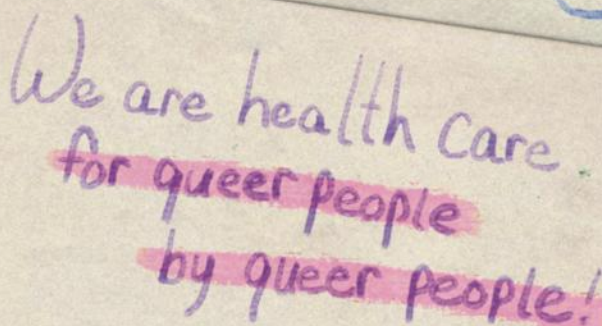 We are health care
for queer people
by queer people!